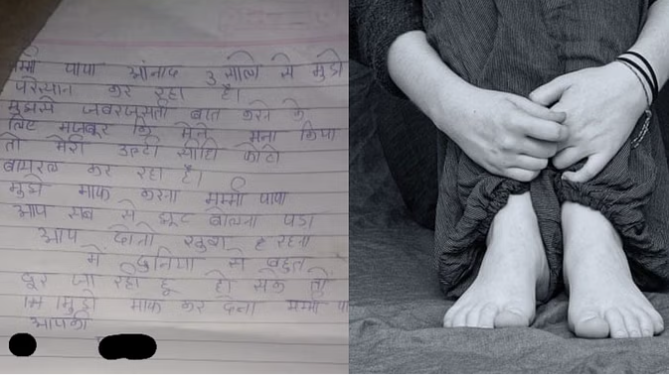 मम्मी पापा आंनाद 3 सालो से मुझे
परेस्यान कर रहा है।
मुझसे जबरजसती बात करने के
लिए मजबुर कि मेने मना किया
तो मेरी उल्टी सीटि फोटो
वायरल कर रहा है।
मुझे माफ करना मम्मी पापा
आप सब से झुट बोलना पडा
आप दोनो खुश रहना
में दुनिया से बहुत
दूर जा रही हू हो सके तो
मुझे माफ कर देना मम्मी पा
आपकी